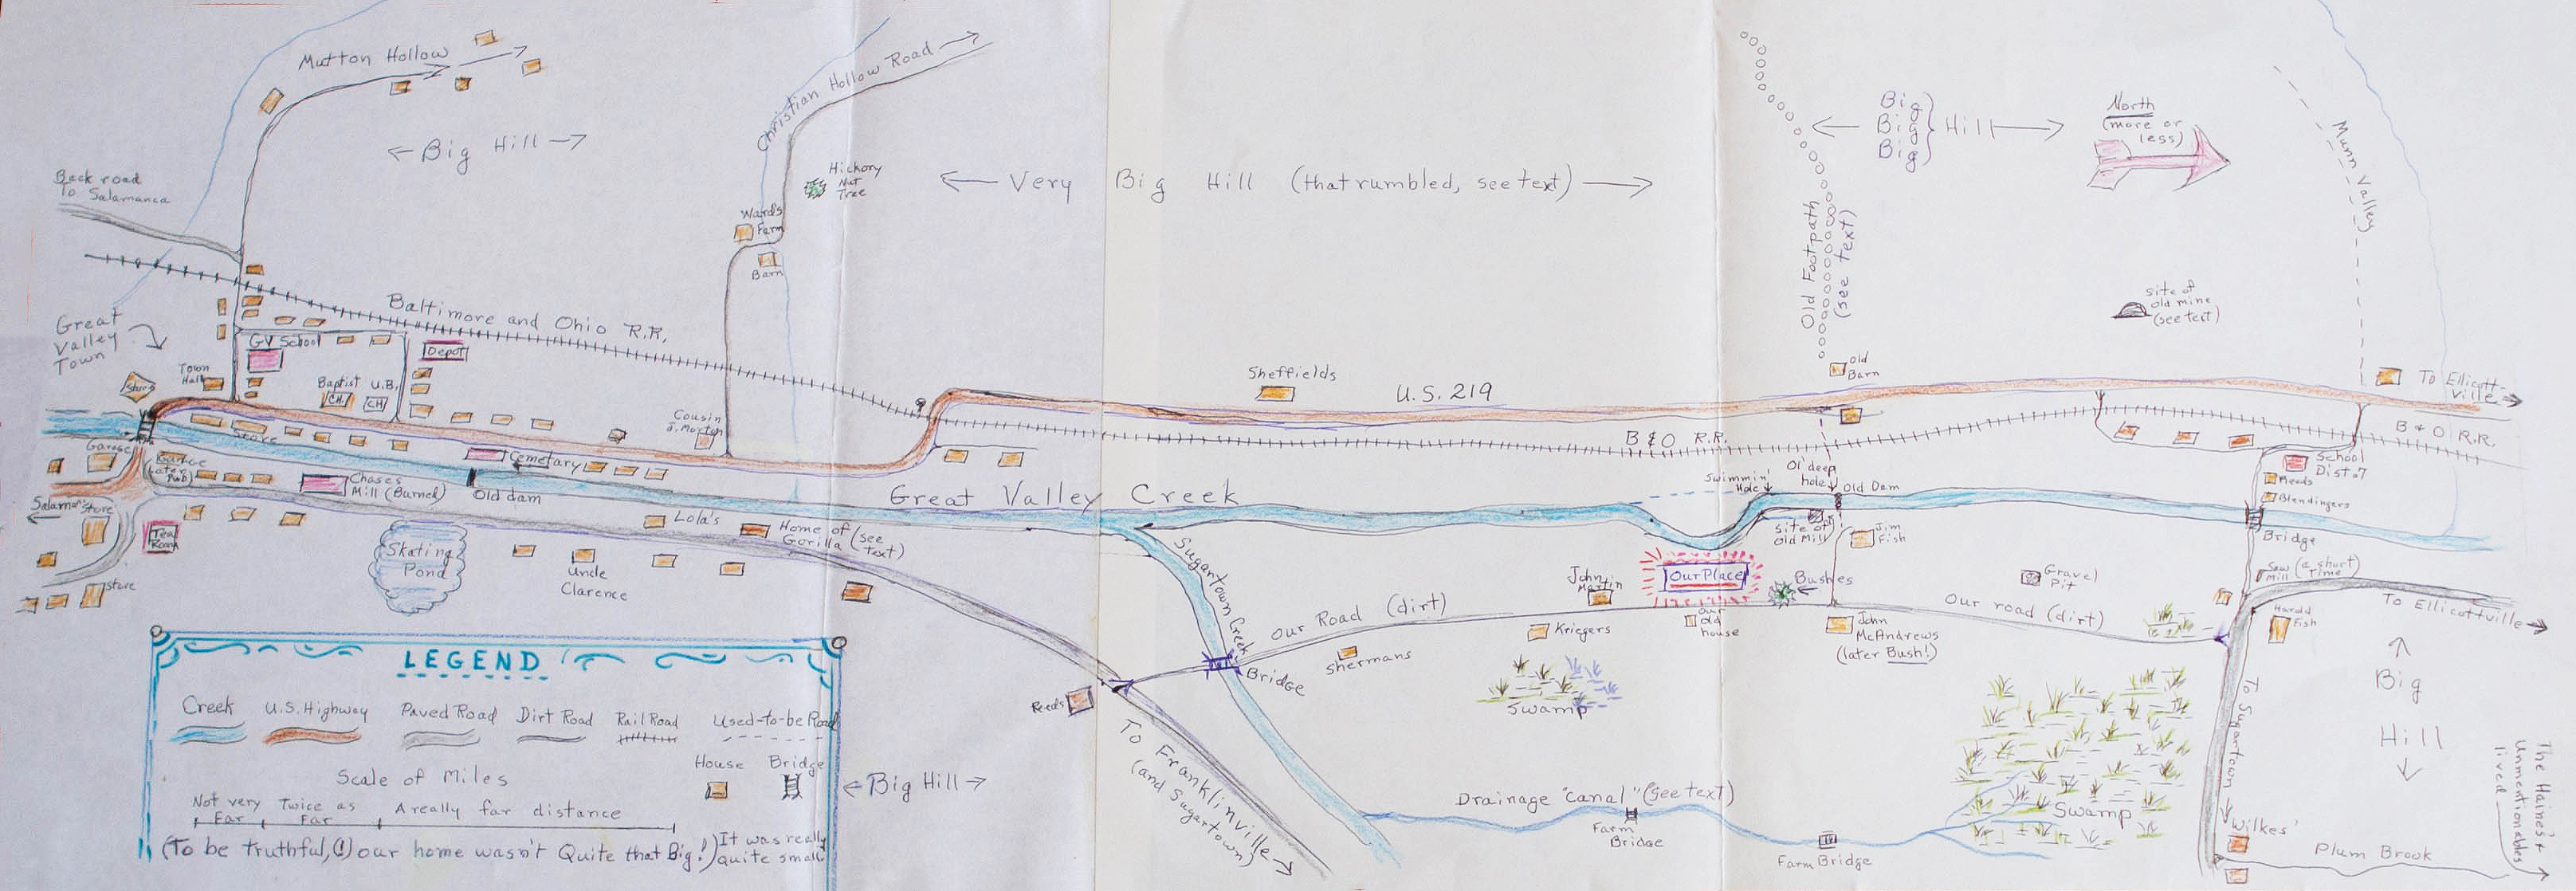 Mutton Hollow
Back road
to Salamanca
← Big Hill →
Christian Hollow Road
Hickory
Nut
Tree
Ward's
Farm
Barn
← Very Big Hill (that rumbled, see text) →
Old Footpath
(see text)
Big
Big
Big
Hill
North
(more or
less)
Munn Valley
site of
old mine
(see text)
Great
Valley
Town
Baltimore and Ohio R.R.
GV School
Depot
Town
Hall
Store
Baptist
CH.
U.B.
CH
Cousin
J. Morton
Sheffields
U.S. 219
Old
Barn
To Ellicott-
ville
B & O R.R.
B & O R.R.
Store
Garage
Garage
(Later
Pub)
Chases
Mill (Burned)
Cemetary
Old dam
Great Valley Creek
Swimmin'
Hole
Ol' deep
hole
Old Dam
School
Dist. 7
Reeds
Blendingers
Bridge
Store
Tea
Room
store
Skating
Pond
Lola's
Home of (see
Gorilla text)
Uncle
Clarence
Sugartown Creek
site of
Old Mill
Jim
Fish
John
Martin
Our Place
Bushes
Gravel
Pit
Saw (a short
Mill Time)
To Ellicottville
Harold
Fish
Our Road (dirt)
Our road (dirt)
Kriegers
Our
Old
house
John
McAndrews
(later Bush!)
Shermans
Bridge
Reeds
To Franklinville
(and Sugartown)
Swamp
Swamp
To Sugartown
Big
Hill
The Haines' +
Unmentionables
lived
Drainage "canal" (see text)
Farm
Bridge
Farm Bridge
Wilkes'
Plum Brook
← Big Hill →
LEGEND
Creek
U.S. Highway
Paved Road
Dirt Road
Rail Road
Used-to-be Road
Scale of Miles
House
Bridge
Not very
Far
Twice as
Far
A really far distance
(To be truthful, (!) our home wasn't Quite that Big!)
It was really
quite small